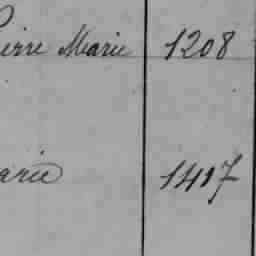 ierre Marie 1208
arie 1417